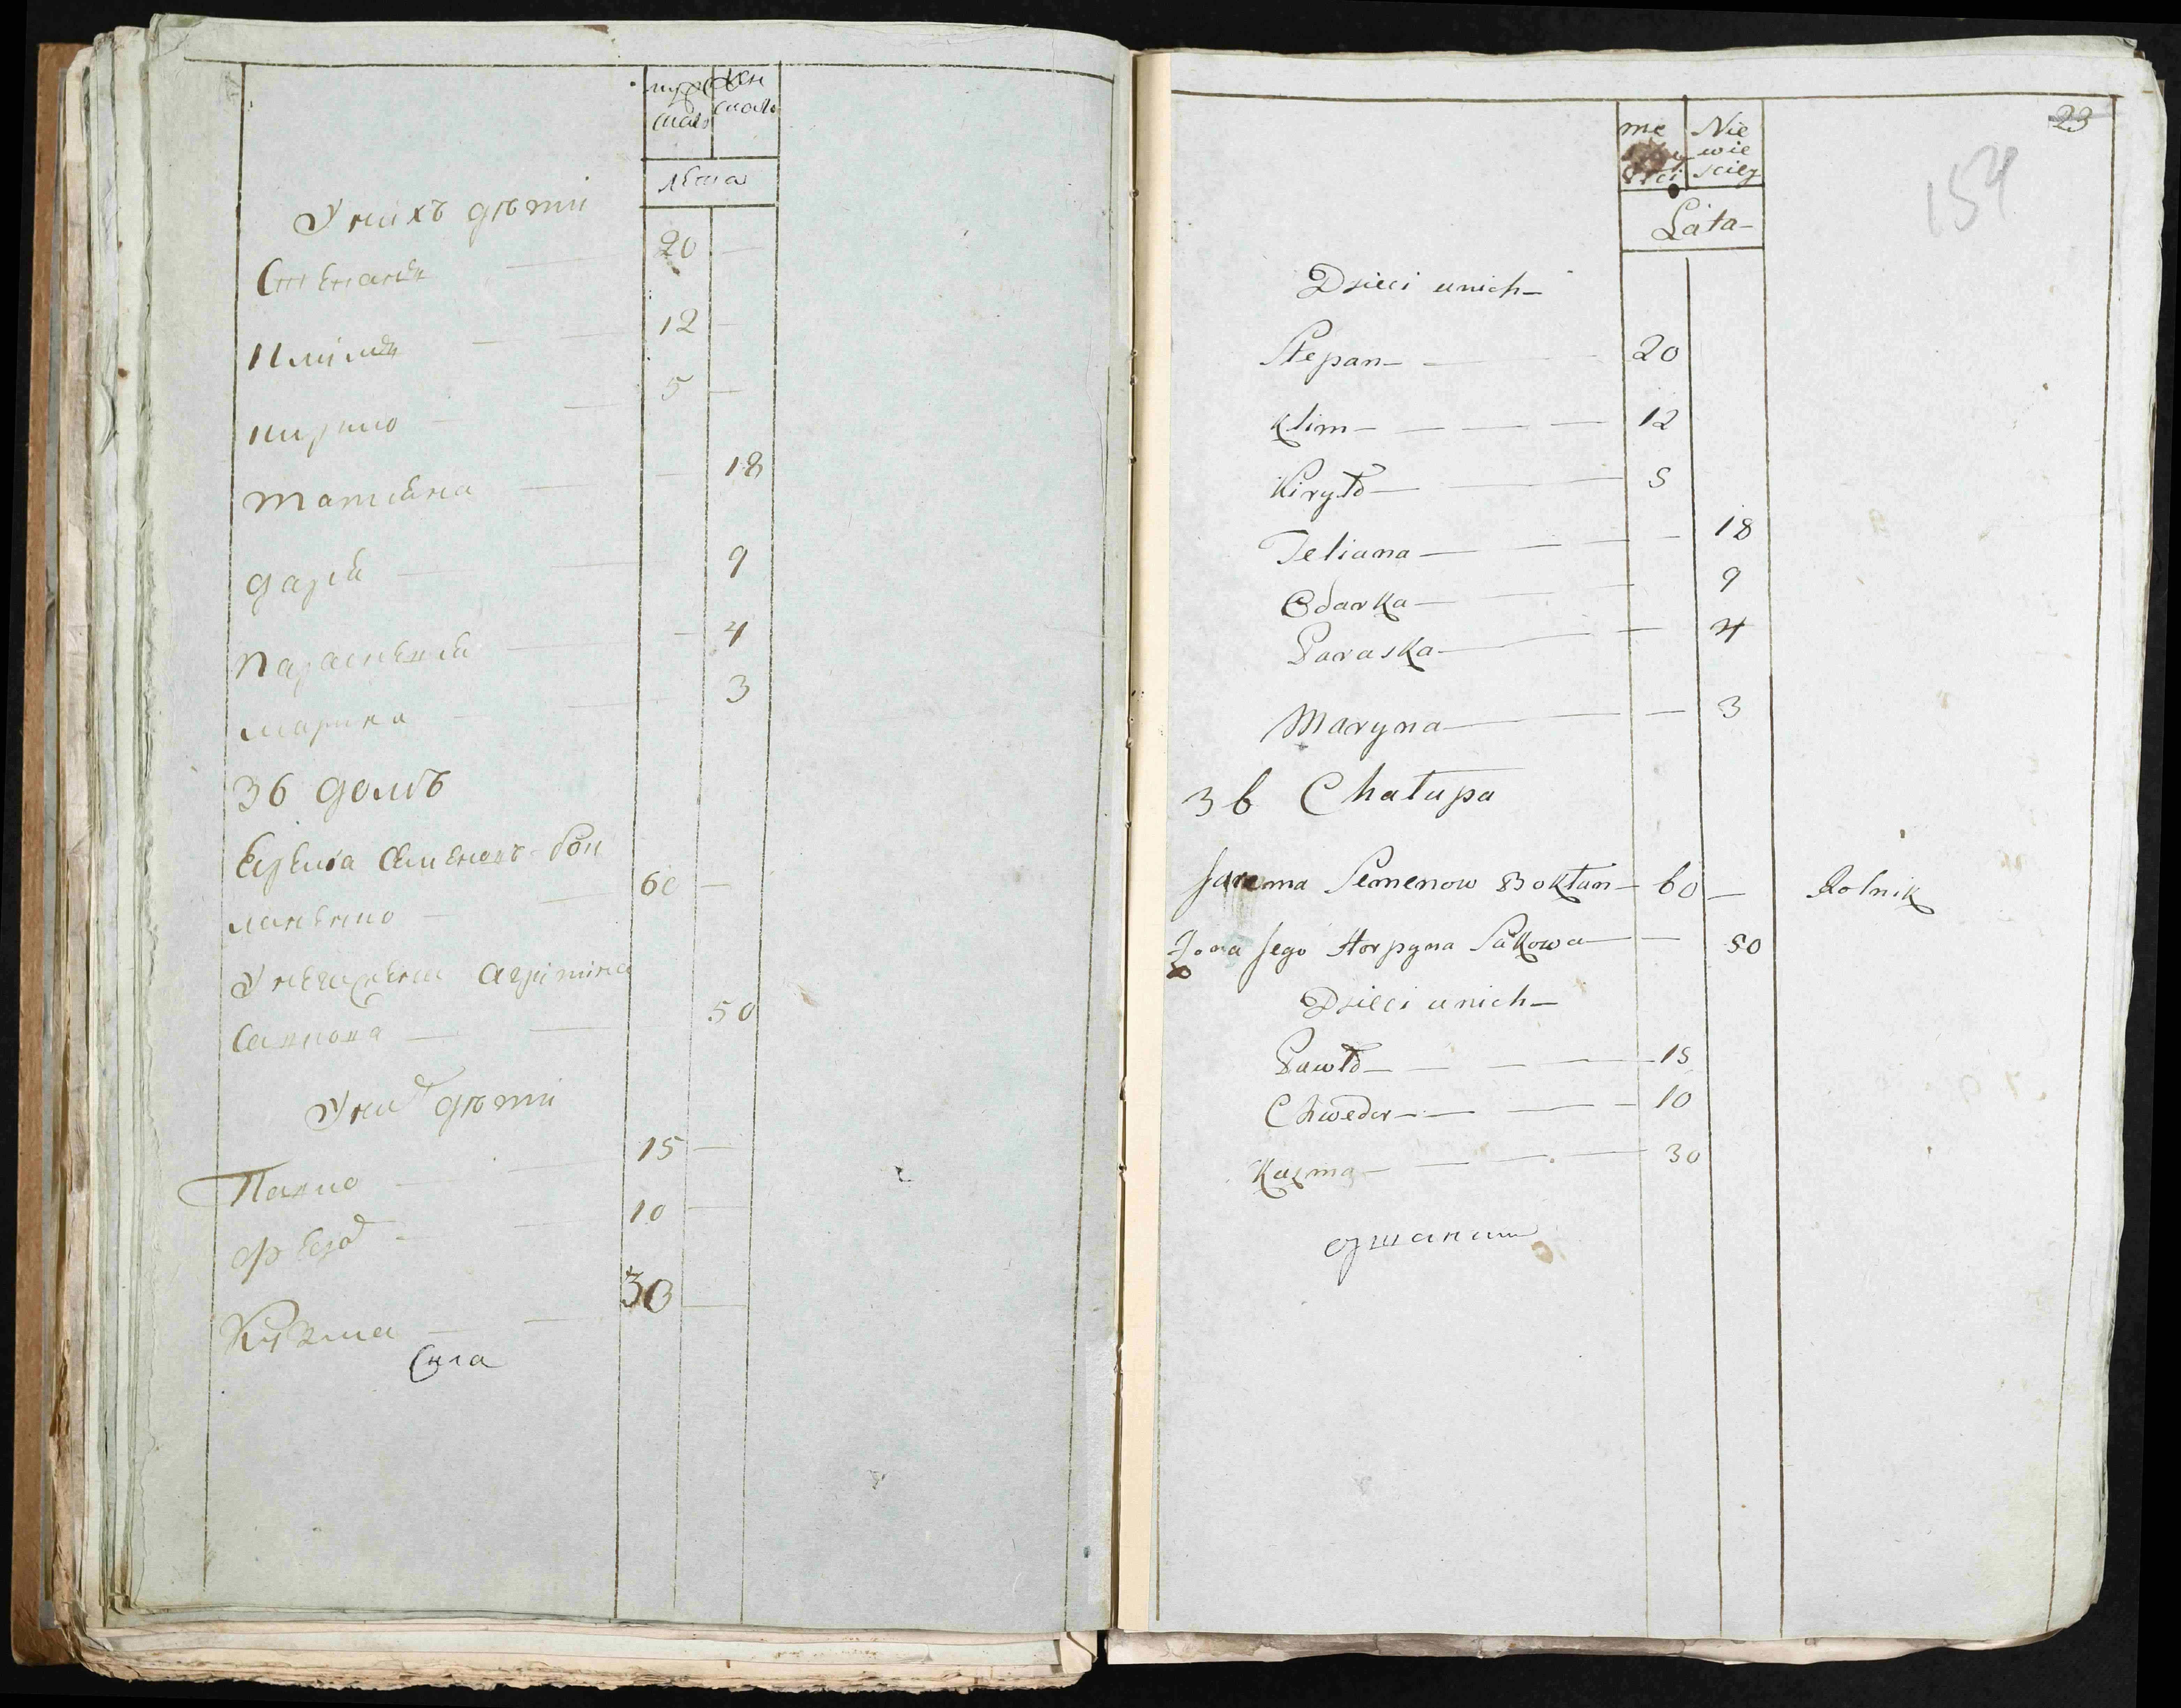 муж
ска
жен
ска
лѣта
У нихъ дѣти
Степанъ 20 —
Климъ 12 —
Кирило — 5 —
Татиана — 18
Дарія — 9
Параскевія — 4
Марина — 3
36 домъ
Ерема Семеновъ Бок
60 —
У него жена Агрипина
Савкова — 50
У них дѣти
Павло — 15 —
Федор — 10 —
Кузма — 30 —
23
154
mę
ski
Nie
wie
sciey
Lata
Dzieci u nich —
Stepan — 20
Klim — 12
Kiryło — 5
Teliana — 18
Odarka — 9
Paraska — 4
Maryna — 3
36 Chałupa
Jarema Semenow Bokłan — 60 — Rolnik
Żona Jego Horpyna Sakowa — 50
Dzieci u nich —
Pawło — 15
Chwedor — 10
Kuzma — 30